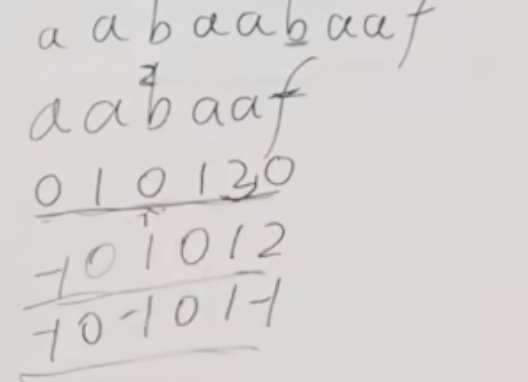 a a b a a b a a f
a a b a a f
0 1 0 1 2 0
-1 0 1 0 1 2
-1 0 -1 0 1 -1